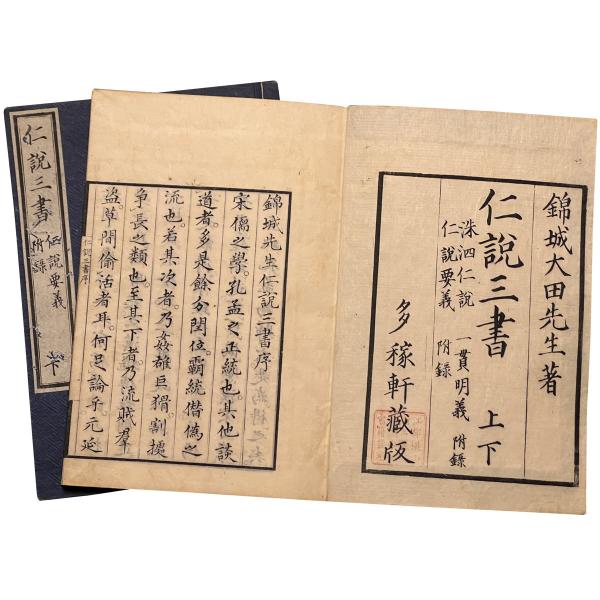 錦城大田先生著
仁說三書 上下
洙泗仁說 一貫明義 附錄
仁說要義 附錄
多稼軒藏版
錦城先生仁說三書序
宋儒之學。孔孟之正統也。其他談
道者。多是餘分閏位。霸統僭僞之
流也。若其次者。乃姦雄巨猾割據
争長之類也。至其下者。乃流賊羣
盜。草間偷活者耳。何足論乎。元延
仁說三書序
仁說三書
仁說要義
附錄